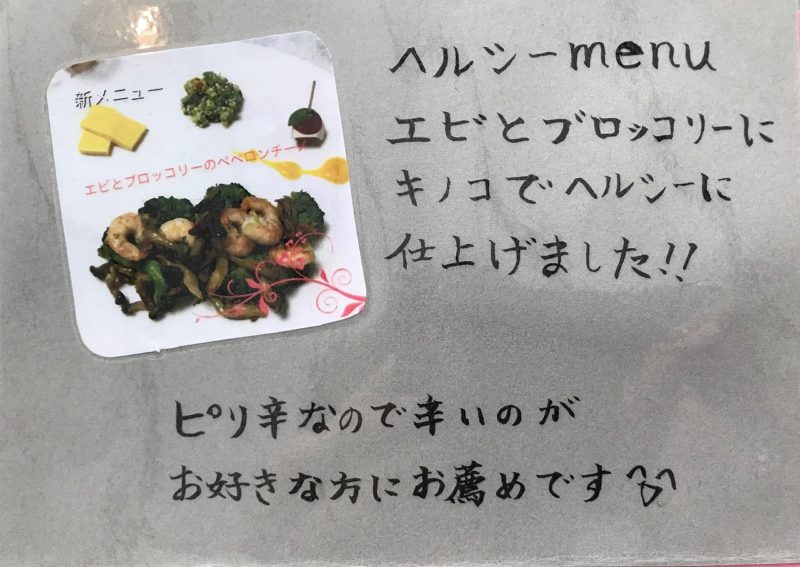 新メニュー
エビとブロッコリーのペペロンチーノ
ヘルシーmenu
エビとブロッコリーに
キノコでヘルシーに
仕上げました!!
ピリ辛なので辛いのが
お好きな方にお薦めです